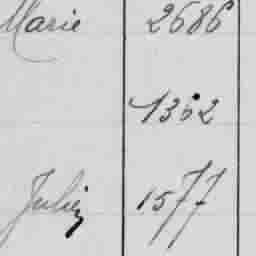 Marie 2686
1362
Julien 1577